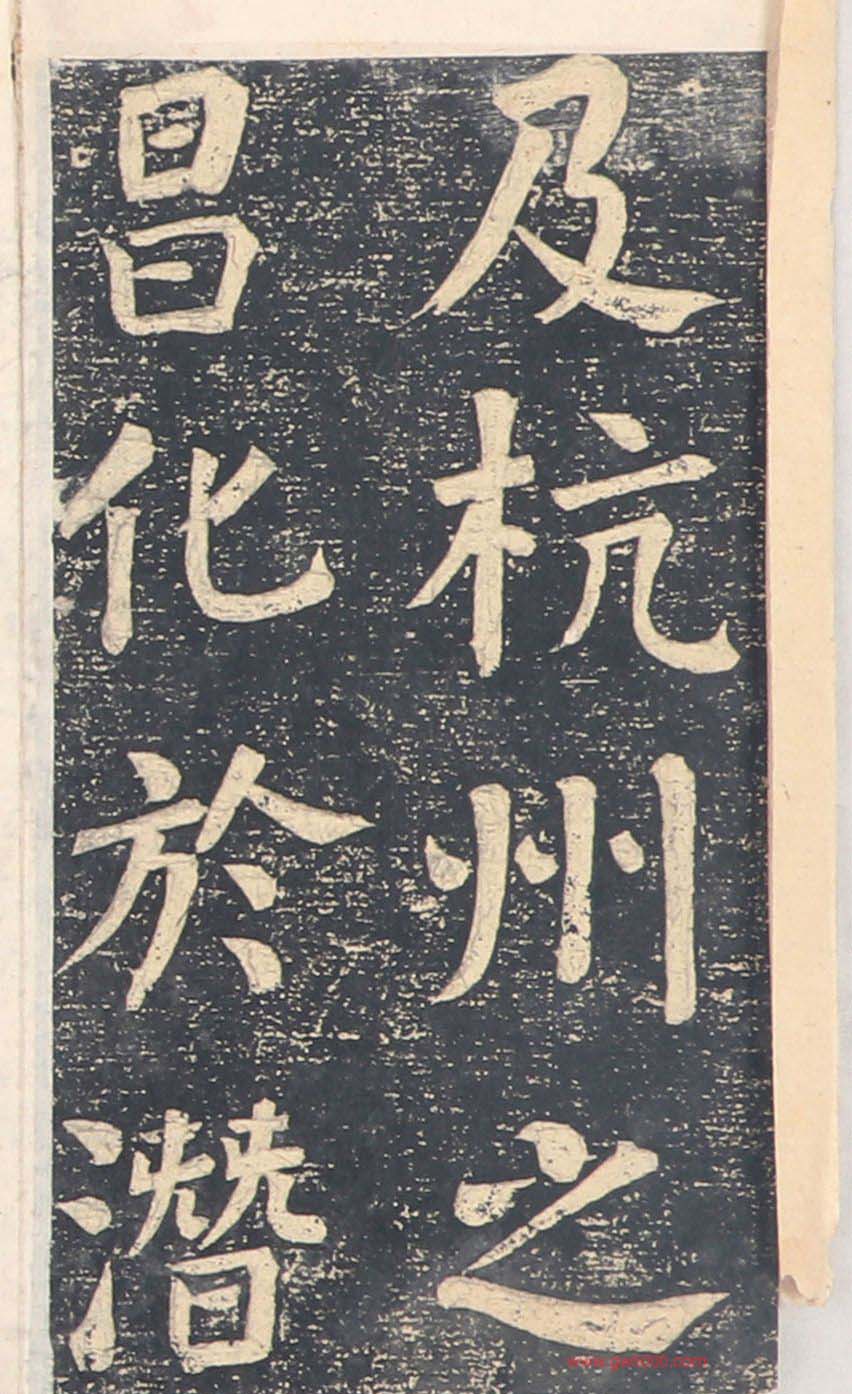 及杭州之
昌化於潛
www.gwII000.com